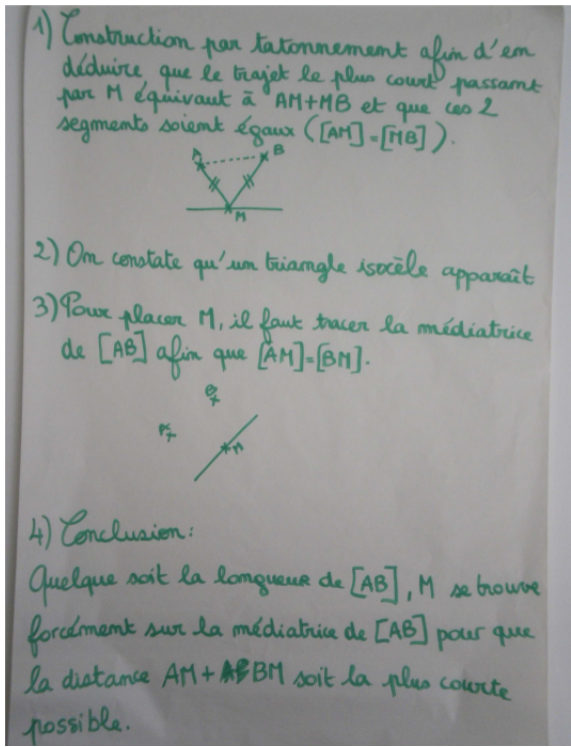 1) Construction par tatonnement afin d'en
déduire que le trajet le plus court passant
par M équivaut à AM+MB et que ces 2
segments soient égaux ([AM]=[MB]).
A B
M
2) On constate qu'un triangle isocèle apparaît
3) Pour placer M, il faut tracer la médiatrice
de [AB] afin que [AM]=[BM].
B
A
M
4) Conclusion:
Quelque soit la longueur de [AB], M se trouve
forcément sur la médiatrice de [AB] pour que
la distance AM+ BM soit la plus courte
possible.